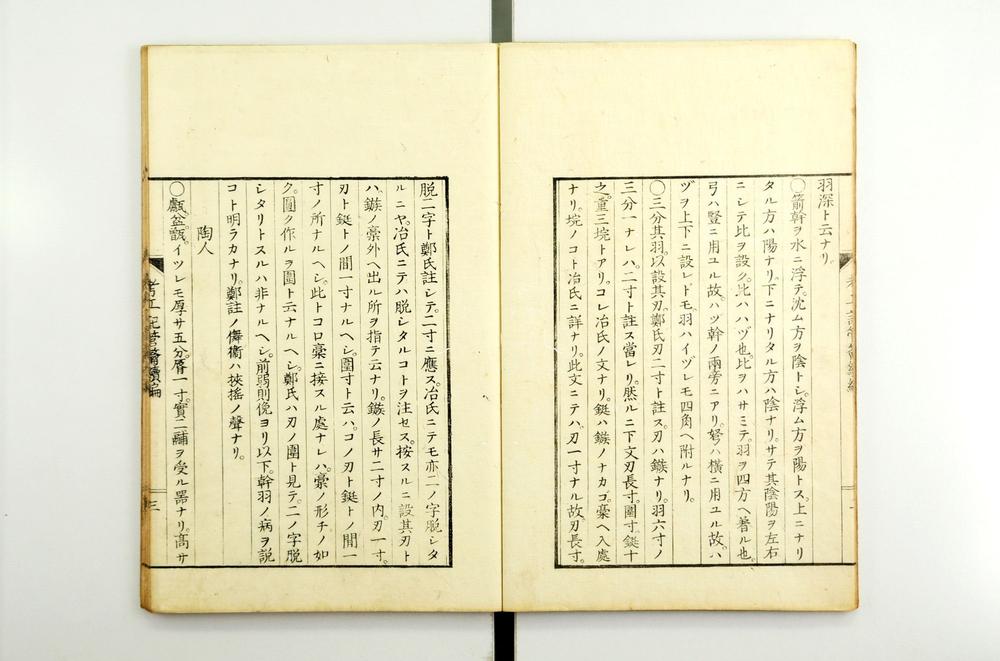 羽深ト云ナリ。
〇箭幹ヲ水ニ浮テ。沈ム方ヲ陰トシ。浮ム方ヲ陽トス。上ニナリ
タル方ハ陽ナリ。下ニナリタル方ハ陰ナリ。サテ其陰陽ヲ左右
ニシテ比ヲ設ク。此ハハヅ也。比ヲハサミテ。羽ヲ四方ヘ著ル也。
弓ハ豎ニ用ユル故。ハツ幹ノ兩旁ニアリ。弩ハ横ニ用ユル故。ハ
ヅヲ上下ニ設レドモ。羽ハイヅレモ四角ヘ附ルナリ。
〇三分其羽。以設其刃。鄭氏刃二寸ト註ス。刃ハ鏃ナリ。羽六寸ノ
三分一ナレハ。二寸ト註ス當レリ。然ルニ下文刃長寸。圍寸。鋌十
之。重三垸トアリ。コレ冶氏ノ文ナリ。鋌ハ鏃ノナカゴ。槀ヘ入處
ナリ。垸ノコト冶氏ト詳ナリ。此文ニテハ。刃一寸ナル故刃長寸。
脱二字ト鄭氏註シテ。二寸ニ應ス。冶氏ニテモ亦二ノ字脱シタ
ルニヤ。冶氏ニテハ脱シタルコトヲ注セス。按スルニ設其刃ト
ハ。鏃ノ槀外ヘ出ル所ヲ指テ云ナリ。鏃ノ長サ二寸ノ内。刃一寸。
刃ト鋌トノ間一寸ナルヘシ。圍寸ト云ハ。コノ刃ト鋌トノ間一
寸ノ所ナルヘシ。此トコロ槀ニ接スル處ナレハ。槀ノ形チノ如
ク。圓ク作ルヲ圍ト云ナルヘシ。鄭氏ハ刃ノ圍ト見テ。二ノ字脱
シタリトスルハ非ナルヘシ。前弱則俛ヨリ以下。幹羽ノ病ヲ説
コト明ラカナリ。鄭註ノ儛衛ハ挾搖ノ聲ナリ。
陶人
〇甗盆甑。イツレモ厚サ五分。脣一寸。實二鬴ヲ受ル器ナリ。高サ
三